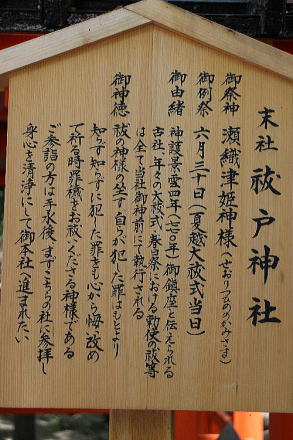 末社 祓戸神社
御祭神 瀬織津姫神様(せおりつひめのかみさま)
御例祭 六月三十日(夏越大祓式当日)
御由緒 神護景雲四年(七七〇年)御鎮座と伝えられる
古社、年々の大祓式、春日祭における勅使の祓等
は全て当社御神前にて執行される
御神徳 祓の神様の坐す自らが犯した罪はもとより
知らず知らずに犯した罪をも心から悔い改め
て祈る時罪穢をお祓いくださる神様である
ご参詣の方は手水後、まずこちらの社に参拝し
身心を清浄にして御本社へ進まれたい